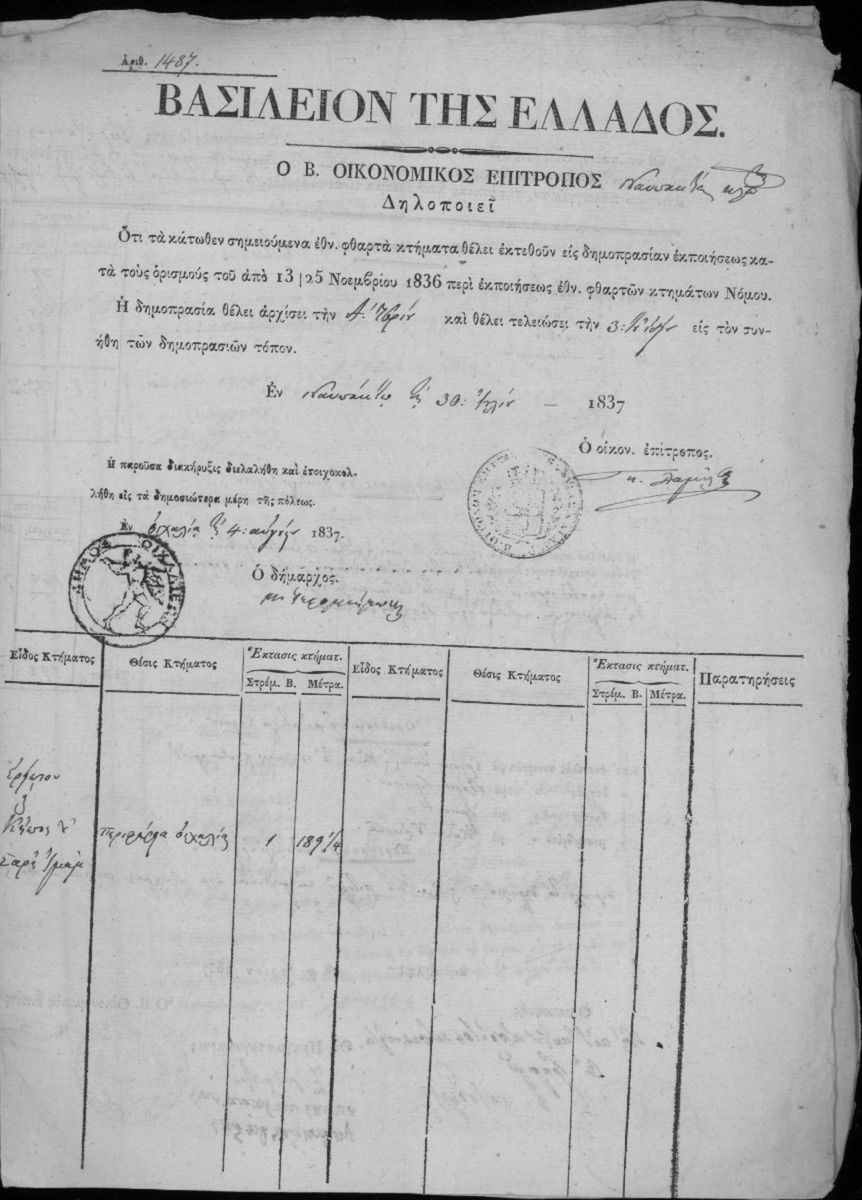 Ἀριθ. 1487.
ΒΑΣΙΛΕΙΟΝ ΤΗΣ ΕΛΛΑΔΟΣ.
Ο Β. ΟΙΚΟΝΟΜΙΚΟΣ ΕΠΙΤΡΟΠΟΣ Ναυπακτίας
Δηλοποιεῖ
Ὅτι τὰ κάτωθεν σημειούμενα ἐθν. φθαρτὰ κτήματα θέλει ἐκτεθοῦν εἰς δημοπρασίαν ἐκποιήσεως κα-
τὰ τοὺς ὁρισμοὺς τοῦ ἀπὸ 13|25 Νοεμβρίου 1836 περὶ ἐκποιήσεως ἐθν. φθαρτῶν κτημάτων Νόμου.
Ἡ δημοπρασία θέλει ἀρχίσει τὴν καὶ θέλει τελειώσει τὴν 3: εἰς τὸν συν-
ήθη τῶν δημοπρασιῶν τόπον.
Ἐν Ναυπάκτῳ τῇ 30: 1837
Ὁ οἰκον. ἐπίτροπος.
Ἡ παροῦσα διακήρυξις διελαλήθη καὶ ἐτοιχοκολ-
λήθη εἰς τὰ δημοσιώτερα μέρη τῆς πόλεως.
Ἐν οἰχαλίᾳ τῇ 4: αὐγούστου 1837.
ΔΗΜΟΣ ΟΙΧΑΛΙΕΩΝ
Ὁ δήμαρχος.
Εἶδος Κτήματος Θέσις Κτήματος Ἔκτασις κτήματ. Εἶδος Κτήματος Θέσις Κτήματος Ἔκτασις κτήματ. Παρατηρήσεις
Στρέμ. Β. Μέτρα. Στρέμ. Β. Μέτρα.
Κῆπος περιφέρεια οἰχαλίας 1 189 1/4